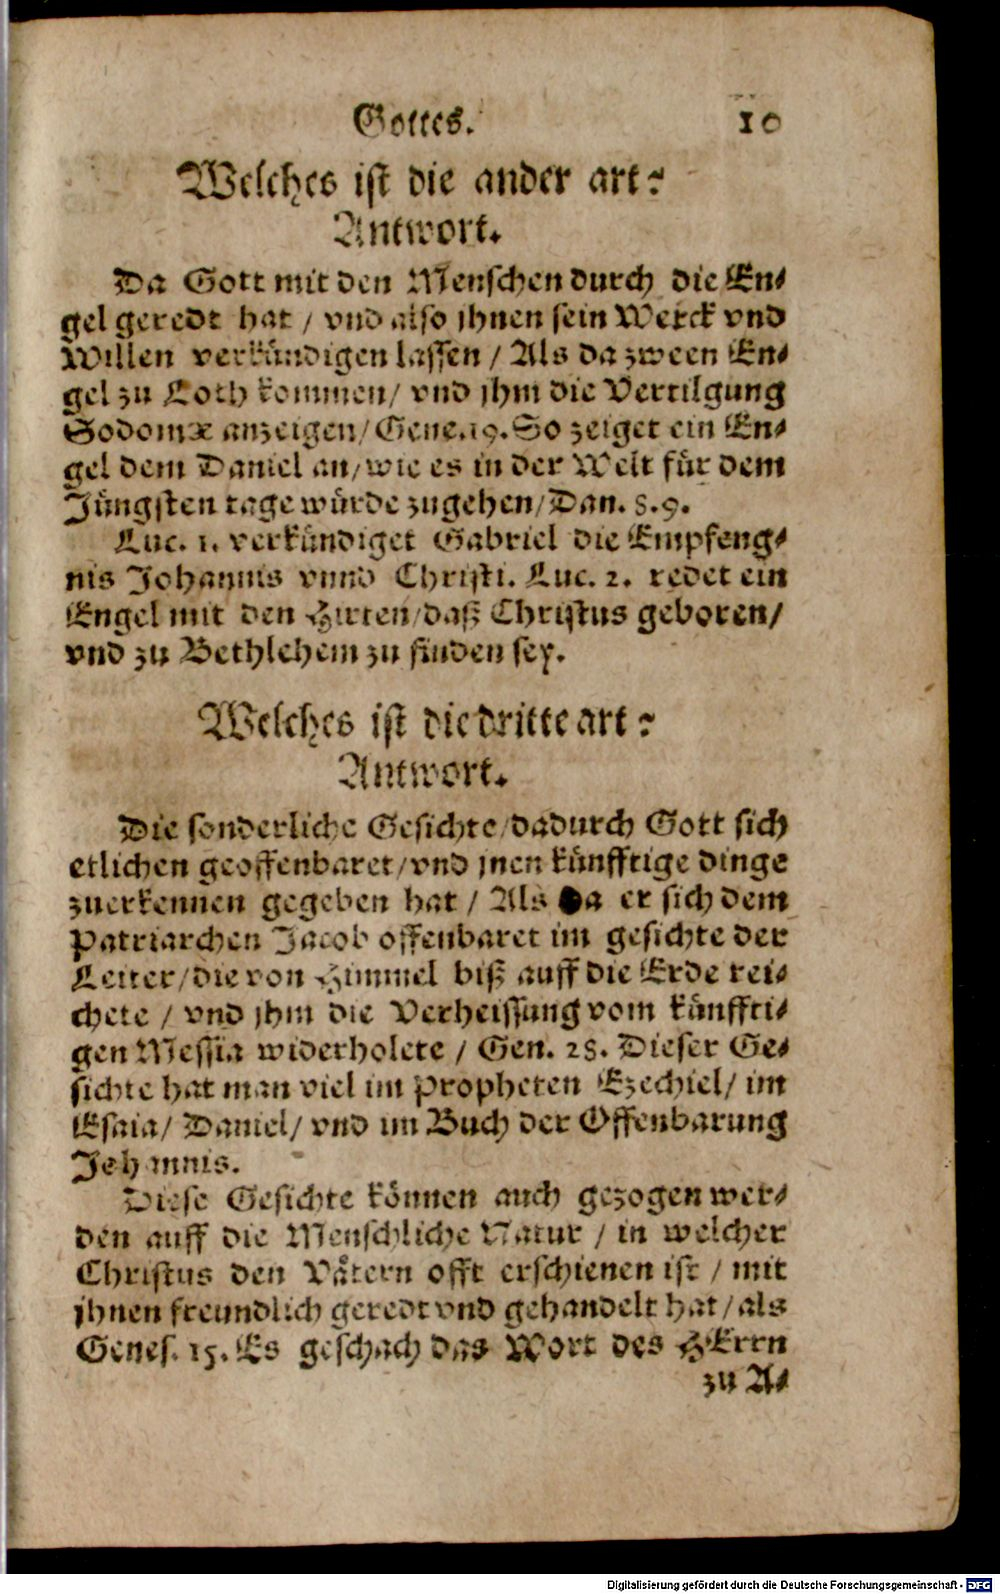 Gottes. 10
Welches ist die ander art?
Antwort.
Da Gott mit den Menschen durch die En⸗
gel geredt hat / vnd also jhnen sein Werck vnd
Willen verkündigen lassen / Als da zween En⸗
gel zu Loth kommen / vnd jhm die Vertilgung
Sodomæ anzeigen / Gene. 19. So zeiget ein En⸗
gel dem Daniel an / wie es in der Welt für dem
Jüngsten tage würde zugehen / Dan. 8. 9.
Luc. 1. verkündiget Gabriel die Empfeng⸗
nis Johannis vnnd Christi. Luc. 2. redet ein
Engel mit den Hirten / daß Christus geboren /
vnd zu Bethlehem zu finden sey.
Welches ist die dritte art?
Antwort.
Die sonderliche Gesichte / dadurch Gott sich
etlichen geoffenbaret / vnd jnen künfftige dinge
zuerkennen gegeben hat / Als da er sich dem
Patriarchen Jacob offenbaret im gesichte der
Leiter / die von Himmel biß auff die Erde rei⸗
chete / vnd jhm die Verheissung vom künffti⸗
gen Messia widerholete / Gen. 28. Dieser Ge⸗
sichte hat man viel im Propheten Ezechiel / im
Esaia / Daniel / vnd im Buch der Offenbarung
Johannis.
Diese Gesichte können auch gezogen wer⸗
den auff die Menschliche Natur / in welcher
Christus den Vätern offt erschienen ist / mit
jhnen freundlich geredt vnd gehandelt hat / als
Genes. 15. Es geschach das Wort des HErrn
zu A⸗
Digitalisierung gefördert durch die Deutsche Forschungsgemeinschaft - DFG